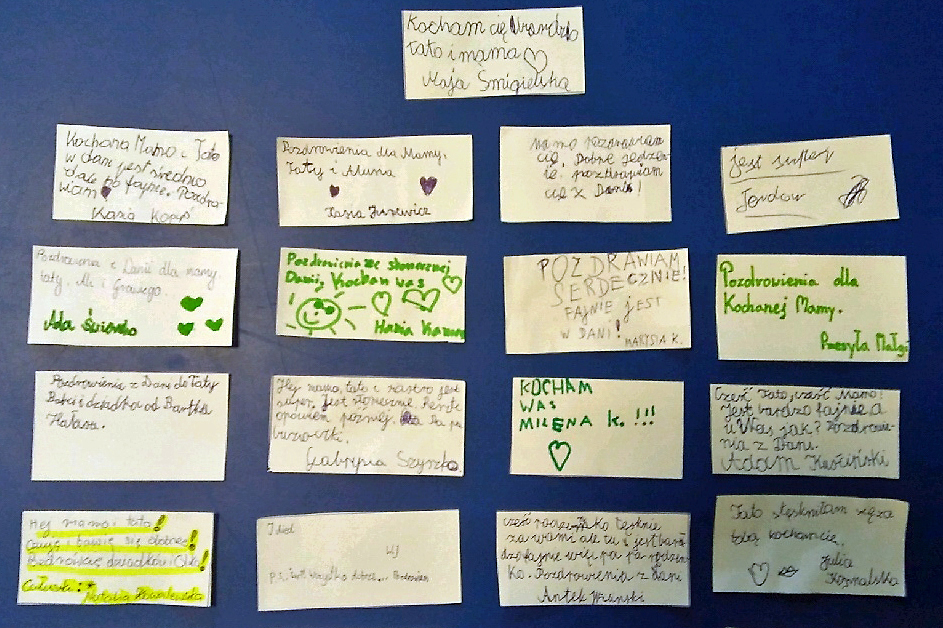 Kocham cię bardzo
tato i mamo
Maja Śmigielska
Kochana Mamo i Tato
w dani jest średnio
ale po fajnie. Pozdra-
wiam
Kasia Kopp
Pozdrowienia dla Mamy,
Taty i Muma
Kasia Jurewicz
Mamo pozdrawiam
cię. Dobre jedzen-
ie. pozdrawiam
cię z Danii!
Jest super
Jordow
Pozdrowienia z Danii dla mamy
taty, Ali i Grawego.
Ada
Pozdrowienia ze słonecznej
Danii, Kocham was
!
Hania
POZDRAWIAM
SERDECZNIE!
FAJNIE JEST
W DANI!
MARYSIA K.
Pozdrowienia dla
Kochanej Mamy.
Przesyła Małgosi
Pozdrowienia z Dani do Taty
Babci i dziadka od Bartka
Hałasa.
Hej mamo, tato i siostro jest
super, jest słonecznie. Resztę
opowiem później. pa pa
buziaczki.
Gabrysia Szyszko
KOCHAM
WAS
MILENA K. !!!
Cześć Tato, cześć Mamo!
Jest bardzo fajnie, a
u Was jak? Pozdrowie-
nia z Dani.
Adam Kościński
Hej mamo i tato!
Całuję i bawię się dobrze!
dziadków i Olę!
Całuski :*
Natalia Kowalewska
P.S. wszystko dobrze...
cześć tęsknie
za wami ale tu jest bard-
zo fajnie więc pa pa rodzin-
ko. Pozdrowienia z Dani
Antek
Tato stęskniłam się za
tobą kochanie.
Julia